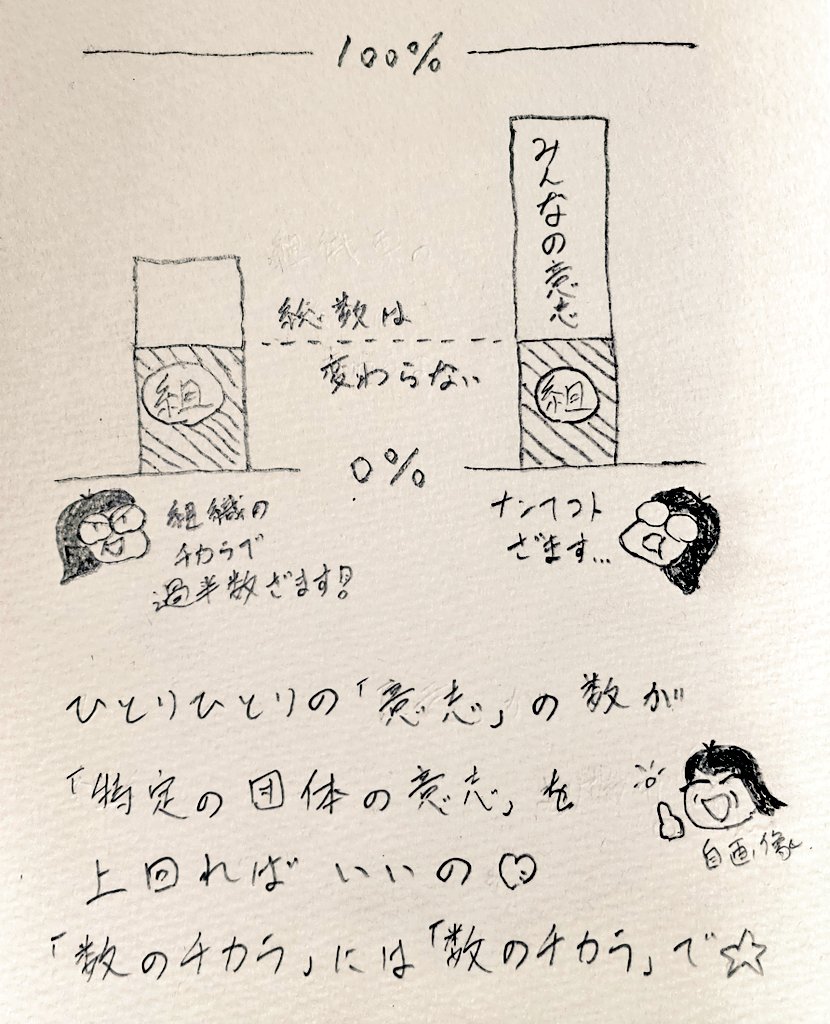 100%
みんなの意志
総数は
変わらない
組
組
0%
組織の
チカラで
過半数ざます!
ナンテコト
ざます...
ひとりひとりの「意志」の数が
「特定の団体の意志」を
上回ればいいの♡
自画像
「数のチカラ」には「数のチカラ」で☆